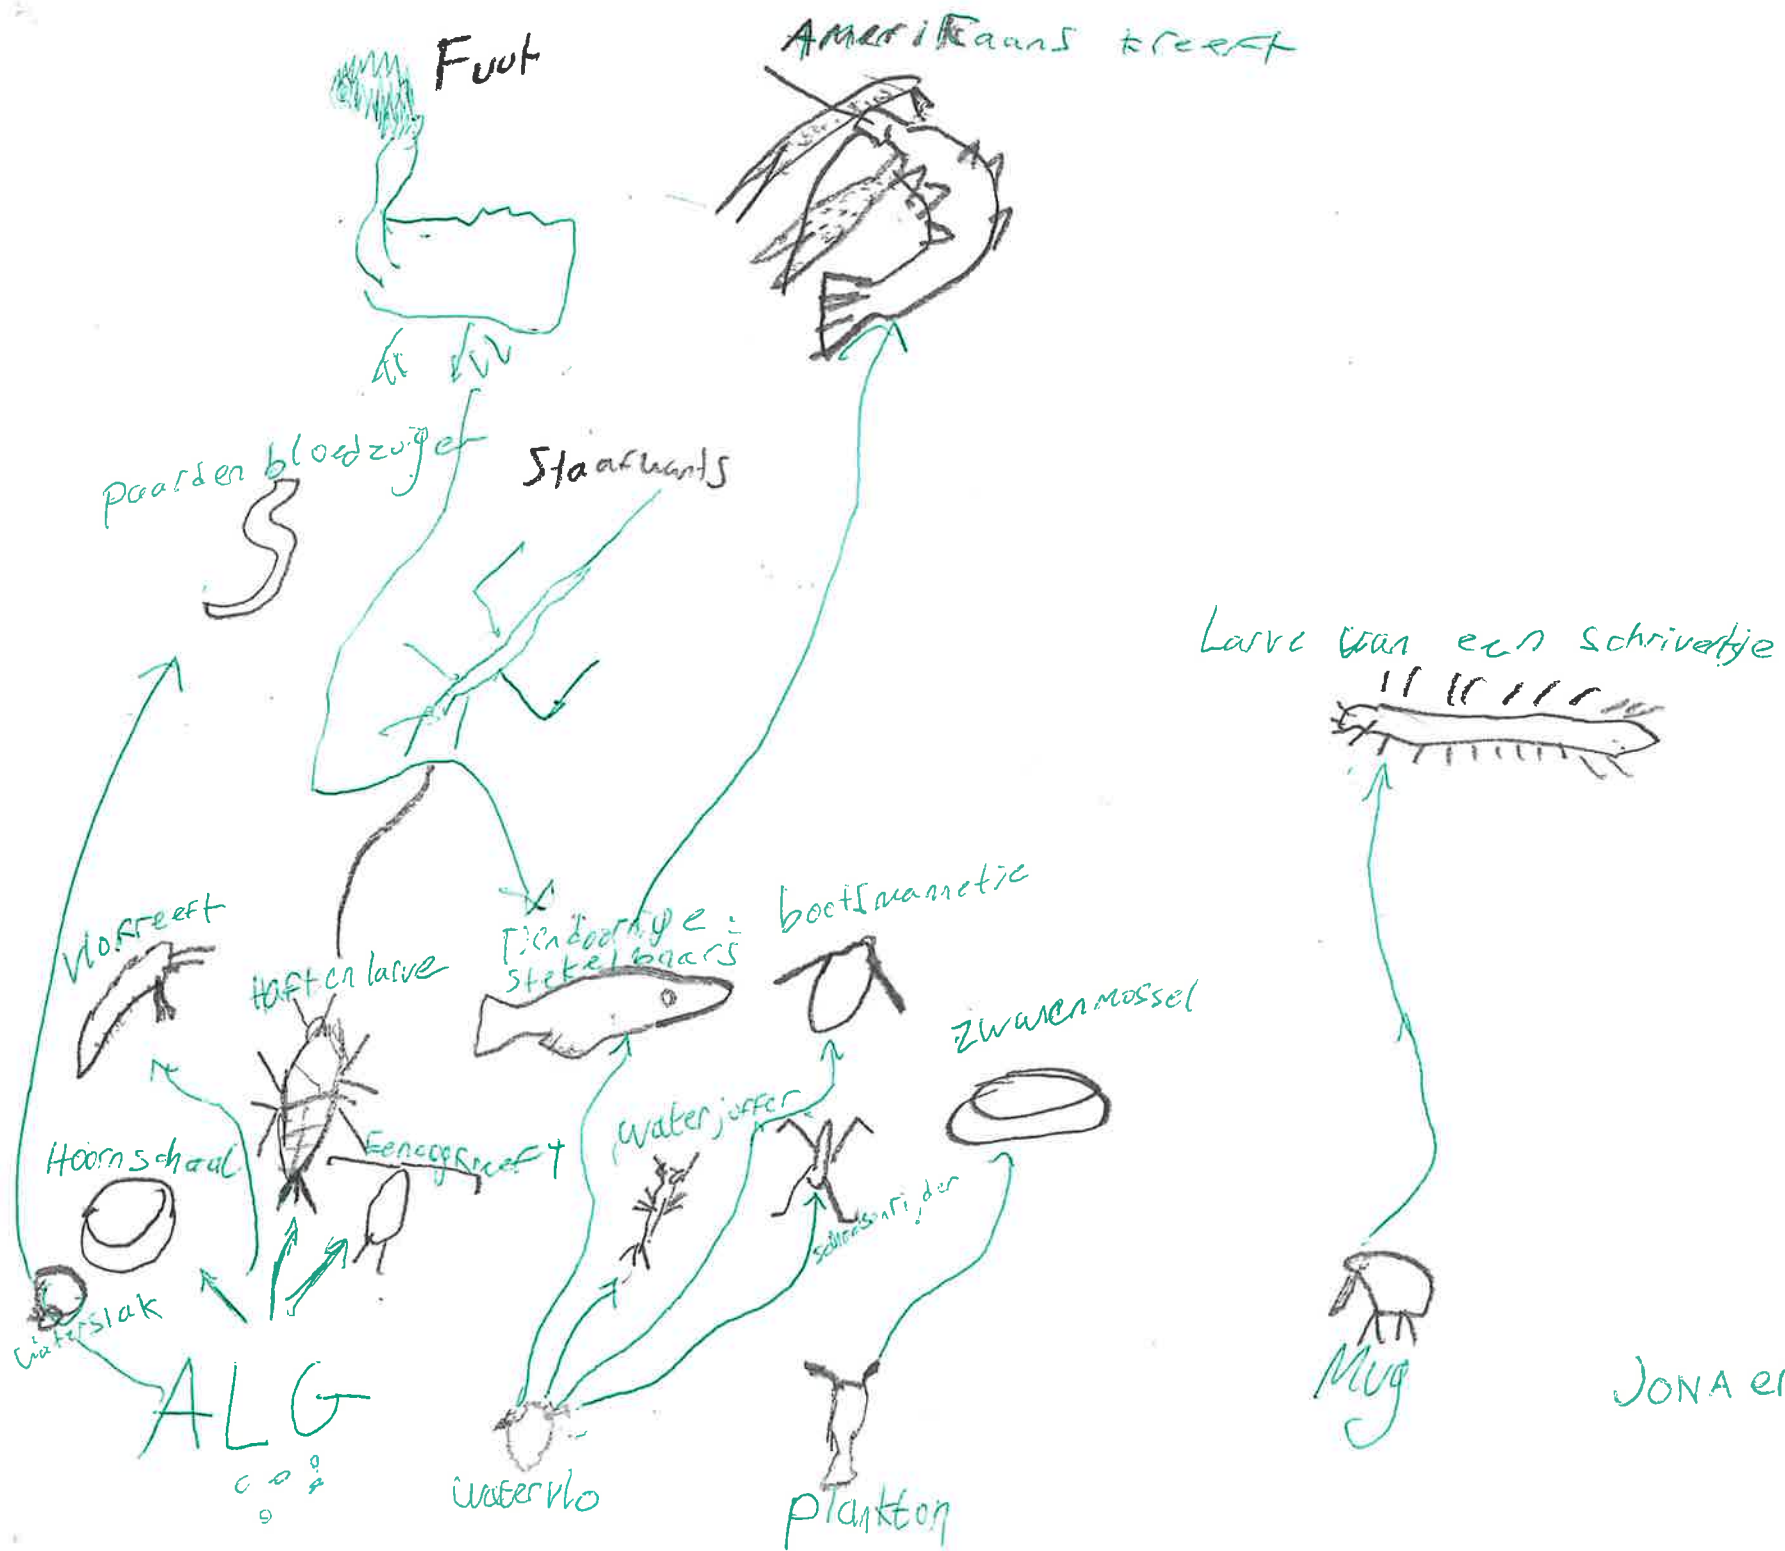 Fuut
Amerikaans kreeft
paarden bloedzuiger
Staafwants
Larve van een schrivertje
vlokreeft
Haften larve
Tiendoornige
stekelbaars
bootsmannetje
zwanenmossel
Hoornschaal
Eenoogkreeft
waterjuffer
schaatsenrijder
waterslak
ALG
watervlo
plankton
Mug
JONA